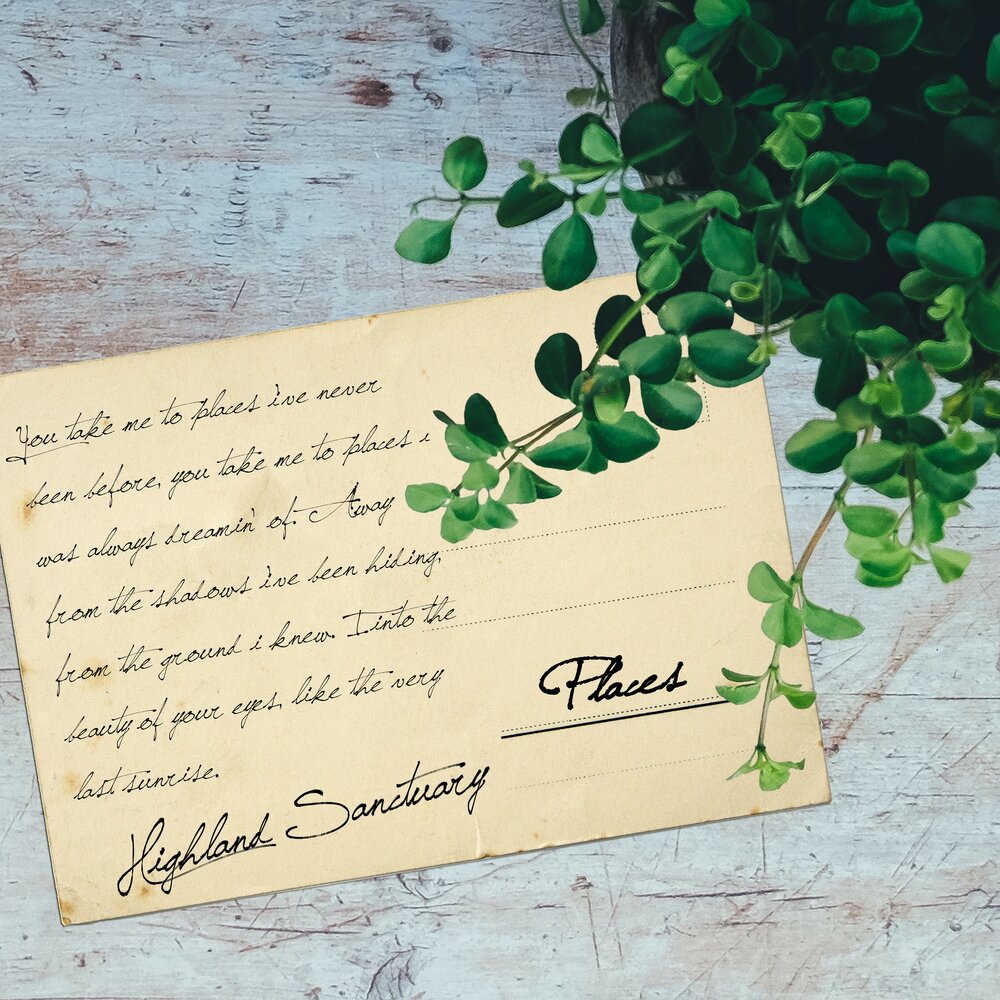 You take me to places i've never
been before, you take me to places i
was always dreamin' of. Away
from the shadows i've been hiding,
from the ground i knew. Into the
beauty of your eyes, like the very
last sunrise.
Highland Sanctuary
Places